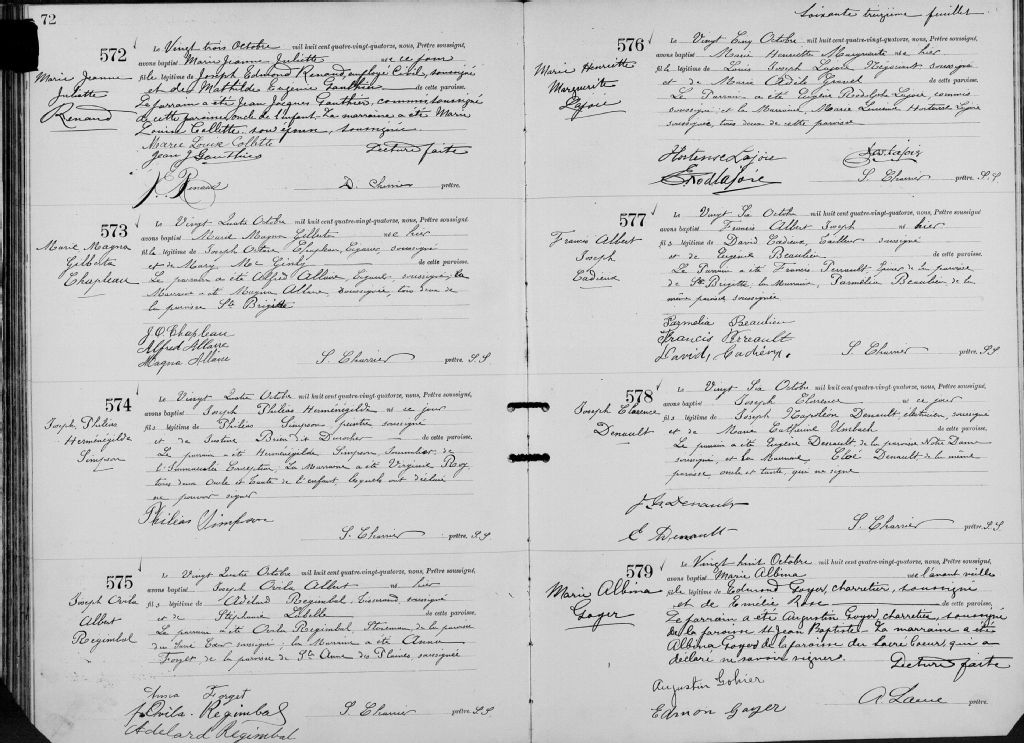 72
572
Marie Jeanne
Juliette
Renaud
Le Vingt trois Octobre mil huit cent quatre-vingt-quatorze, nous, Prêtre soussigné,
avons baptisé Marie Jeanne Juliette née ce jour
fille légitime de Joseph Edmond Renaud, employé Civil, soussigné
et de Mathilde Eugénie Gauthier de cette paroisse.
Le parrain a été Jean Jacques Gauthier, commis, soussigné
de cette paroisse, oncle de l'enfant. La marraine a été Marie
Louise Collette, son épouse, soussignée.
Marie Louise Collette
Jean J Gauthier
Lecture faite
J. E. Renaud
prêtre.
573
Marie Magna
Gilberte
Chapleau
Le Vingt Quatre Octobre mil huit cent quatre-vingt-quatorze, nous, Prêtre soussigné,
avons baptisé Marie Magna Gilberte née hier
fille légitime de Joseph Octave Chapleau, soussigné
et de Mary Mc Ginty de cette paroisse.
Le parrain a été Alfred Allaire, soussigné, La
Marraine a été Magna Allaire, soussignée, tous deux de
la paroisse Ste Brigitte
J.O. Chapleau
Alfred Allaire
Magna Allaire
S. Charrier prêtre. S.S
574
Joseph Philéas
Herménégilde
Simpson
Le Vingt Quatre Octobre mil huit cent quatre-vingt-quatorze, nous, Prêtre soussigné,
avons baptisé Joseph Philéas Herménégilde né ce jour
fils légitime de Philéas Simpson, peintre soussigné
et de Justine Brien dit Durocher de cette paroisse.
Le parrain a été Herménégilde Simpson, Sommelier, de
l'Immaculée Conception, La Marraine a été Virginie Roy
tous deux Oncle et Tante de l'enfant lesquels ont déclaré
ne pouvoir signer
Philéas Simpson
S. Charrier prêtre. S.S
575
Joseph Ovila
Albert
Regimbal
Le Vingt Quatre Octobre mil huit cent quatre-vingt-quatorze, nous, Prêtre soussigné,
avons baptisé Joseph Ovila Albert né hier
fils légitime de Adélard Regimbal, soussigné
et de Stéphanie Labelle de cette paroisse.
Le parrain a été Ovila Regimbal, de la paroisse
du Sacré Cœur, soussigné; la Marraine a été Anna
Forget de la paroisse de Ste Anne des Plaines, soussignée
Anna Forget
Ovila Regimbal
Adélard Regimbal
S. Charrier prêtre. S.S
Soixante treizième feuillet
576
Marie Henriette
Marguerite
Lajoie
Le Vingt Cinq Octobre mil huit cent quatre-vingt-quatorze, nous, Prêtre soussigné,
avons baptisé Marie Henriette Marguerite née hier
fille légitime de Louis Joseph Lajoie Négociant soussigné
et de Marie de cette paroisse.
Le Parrain a été Eugène Rodolphe Lajoie, commis
soussigné et la Marraine, Marie Hortense Lajoie
soussignée, tous deux de cette paroisse
Hortense Lajoie
E Rod Lajoie
S. Charrier prêtre. S.S.
577
Francis Albert
Joseph
Cadieux
Le Vingt Six Octobre mil huit cent quatre-vingt-quatorze, nous, Prêtre soussigné,
avons baptisé Francis Albert Joseph né hier
fils légitime de David Cadieux, tailleur soussigné
et de Eugénie Beaulieu de cette paroisse.
Le Parrain a été Francis Perrault, de la paroisse
de Ste Brigitte; la Marraine, Parmélia Beaulieu de la
même paroisse soussignée
Parmelia Beaulieu
Francis Perreault
David Cadieux.
S. Charrier prêtre. S.S
578
Joseph Clarence
Denault
Le Vingt Six Octobre mil huit cent quatre-vingt-quatorze, nous, Prêtre soussigné,
avons baptisé Joseph Clarence né ce jour
fils légitime de Joseph Napoléon Denault électricien, soussigné
et de Marie Catherine Umbach de cette paroisse.
Le parrain a été Eugène Denault, de la paroisse Notre Dame
soussigné, et La Marraine Cloé Denault de la même
paroisse, oncle et tante, qui ne signe
E Denault
S. Charrier prêtre. S.S
579
Marie Albina
Goyer
Le Vingt huit Octobre mil huit cent quatre-vingt-quatorze, nous, Prêtre soussigné,
avons baptisé Marie Albina née l'avant veille
fille légitime de Edmond Goyer, charretier, soussigné
et de Emélie Rose de cette paroisse.
Le parrain a été Augustin Goyer, charretier, soussigné
de la paroisse St Jean Baptiste. La marraine a été
Albina Goyer de la paroisse du Sacré Coeur, qui a
déclaré ne savoir signer. Lecture faite
Augustin Gohier
Edmon Goyer
prêtre.